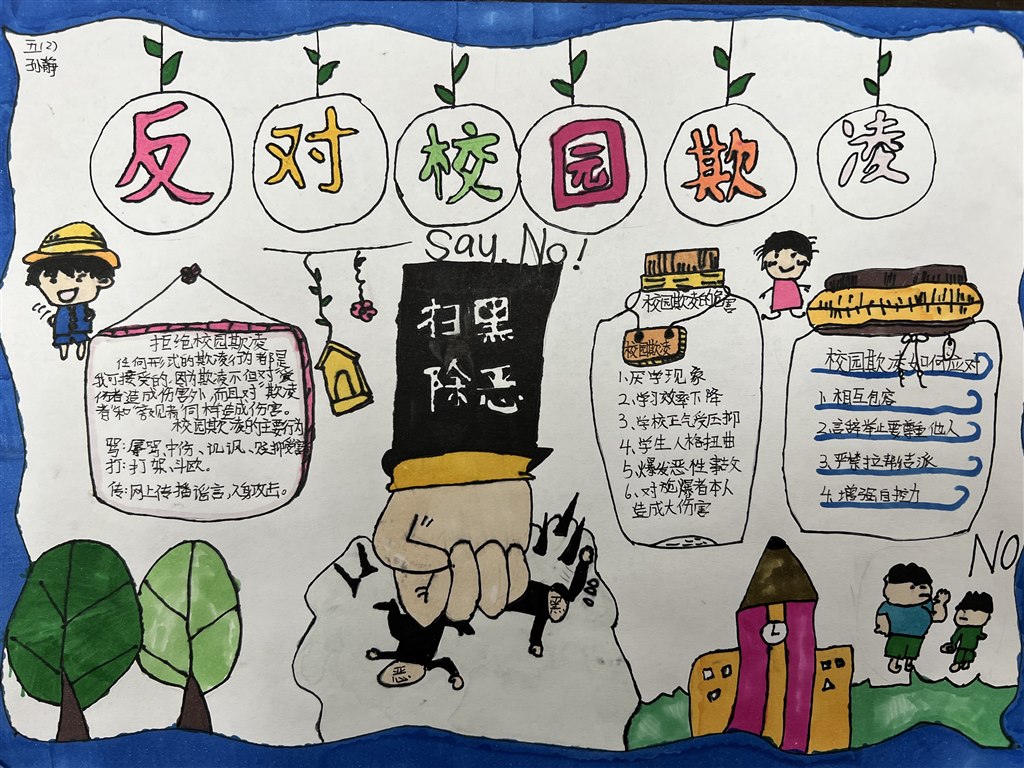 五(2)
孙静
反对校园欺凌
Say No!
扫黑
除恶
拒绝校园欺凌
任何形式的欺凌行为都是
我可接受的,因为欺凌不但对受
伤者造成伤害外,而且对"欺凌
者"和"旁观者"同样造成伤害。
校园欺凌的主要行为
骂:辱骂、中伤、讥讽、
打:打架、斗欧。
传:网上传播谣言,人身攻击。
恶
黑
校园欺凌的危害
校园欺凌
1、厌学现象
2、学习效率下降
3、学校正气受压抑
4、学生人格扭曲
5、爆发恶性事故
6、对施爆者本人
造成大伤害
校园欺凌如何应对
1、相互包容
2、言辞举止要尊重他人
3、严禁拉帮结派
4、增强自控力
NO